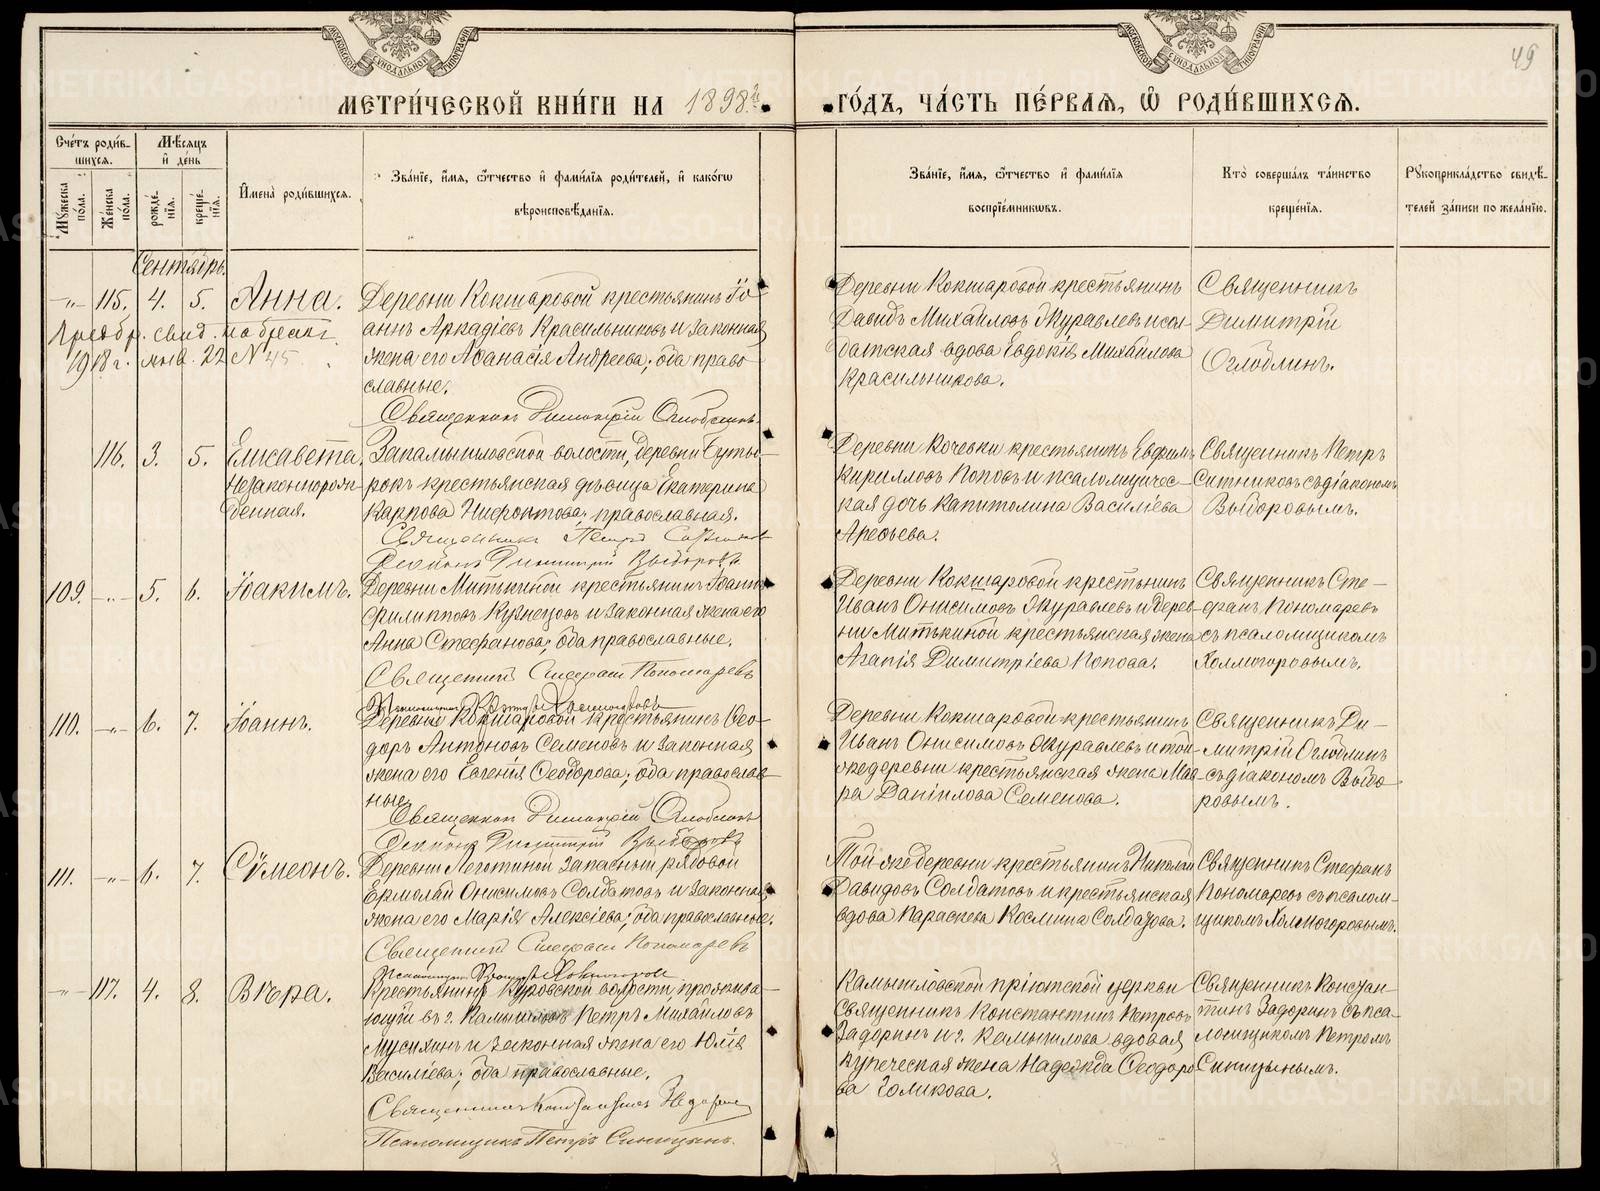 МЕТРИ́ЧЕСКОЙ КНИ́ГИ НА 1898 й
ГО́ДЪ, ЧА́СТЬ ПЕ́РВАЯ, Ѿ РОДИ́ВШИХСЯ.
49
МОСКОВСКОЙ СУНОДАЛЬНОЙ ТИПОГРАФІИ
МОСКОВСКОЙ СУНОДАЛЬНОЙ ТИПОГРАФІИ
Сче́тъ роди́в-
шихся.
Му́жеска по́ла.
Же́нска по́ла.
Мѣ́сяцъ
и҆ де́нь
рожде́-
нїя.
креще́-
нїя.
И҆мена̀ роди́вшихся.
Зва́нїе, и҆́мя, ѻ҆́тчество и҆ фами́лїя роди́телей, и҆ како́гѡ
вѣроисповѣ́данїя.
Зва́нїе, и҆́мя, ѻ҆́тчество и҆ фами́лїя
воспрїе́мниковъ.
Кто̀ соверша́лъ та́инство
креще́нїя.
Рꙋкоприкла́дство свидѣ́-
телей за́писи по жела́нїю.
Сентябрь.
-"- 115. 4. 5. Анна.
Приобр. свид. на брак
1918 г. янв. 22 № 45
Деревни Кокшаровой крестьянинъ Іо
аннъ Аркадіевъ Красильниковъ и законная
жена его Аѳанасія Андреева; оба право
славные.
Священникъ Димитрій Оглоблинъ
Деревни Кокшаровой крестьянинъ
Давидъ Михайловъ Журавлевъ и сол-
датская вдова Евдокія Михайлова
Красильникова.
Священникъ
Димитрій
Оглоблинъ.
116. 3. 5. Елисавета
незаконнорож-
денная.
Закамышловской волости, деревни Буты-
рокъ крестьянская дѣвица Екатерина
Карпова Нифонтова; православная.
Священникъ Петръ Ситников
Діаконъ Димитрій Выборовъ
Деревни Кочевки крестьянинъ Евфимъ
Кирилловъ Поповъ и псаломщичес-
кая дочь Капитолина Васильева
Арефьева.
Священникъ Петръ
Ситниковъ съ діакономъ
Выборовымъ.
109. -"- 5. 6. Іоакимъ.
Деревни Митькиной крестьянинъ Іоаннъ
Филипповъ Кузнецовъ и законная жена его
Анна Стефанова; оба православные.
Священникъ Стефанъ Пономаревъ
Деревни Кокшаровой крестьянинъ
Иванъ Онисимовъ Журавлевъ и дерев-
ни Митькиной крестьянская жена
Агапія Димитріева Попова.
Священникъ Сте-
фанъ Пономаревъ
съ псаломщикомъ
Холмогоровымъ.
110. -"- 6. 7. Іоаннъ.
Деревни Кокшаровой крестьянинъ Ѳео-
доръ Антоновъ Семеновъ и законная
жена его Евгенія Ѳеодорова; оба православ-
ные.
Священникъ Димитрій Оглоблинъ
Діаконъ Димитрій Выборовъ
Деревни Кокшаровой крестьянинъ
Иванъ Онисимовъ Журавлевъ и той-
же деревни крестьянская жена Мав-
ра Данилова Семенова.
Священникъ Ди-
митрій Оглоблинъ
съ діакономъ Выбо-
ровымъ.
111. -"- 6. 7. Сѵмеонъ.
Деревни Леготиной запасный рядовой
Ермолай Онисимовъ Солдатовъ и законная
жена его Марія Алексіева; оба православные.
Священникъ Стефанъ Пономаревъ
Той же деревни крестьянинъ Николай
Давидовъ Солдатовъ и крестьянская
вдова Параскева Космина Солдатова.
Священникъ Стефанъ
Пономаревъ съ псалом-
щикомъ Холмогоровымъ.
-"- 117. 4. 8. Вѣра.
Крестьянинъ Куровской волости, прожива-
ющій въ г. Камышловѣ Петръ Михайловъ
Мусихинъ и законная жена его Юлія
Васильева; оба православные.
Священникъ Константинъ Задоринъ
Псаломщикъ Петръ Синицынъ.
Камышловской пріютской церкви
Священникъ Константинъ Петровъ
Задоринъ и г. Камышлова вдовая
купеческая жена Надежда Ѳеодоро
ва Голикова.
Священникъ Констан-
тинъ Задоринъ съ пса-
ломщикомъ Петромъ
Синицынымъ.